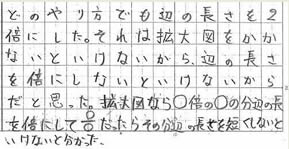 どのやり方でも辺の長さを2
倍にした。それは拡大図をかか
ないといけないから、辺の長さ
を倍にしないといけないから
だと思った。拡大図なら〇倍の〇の分辺の長
を倍にして だったらその分辺の長さを短くしないと
いけないと分かった。